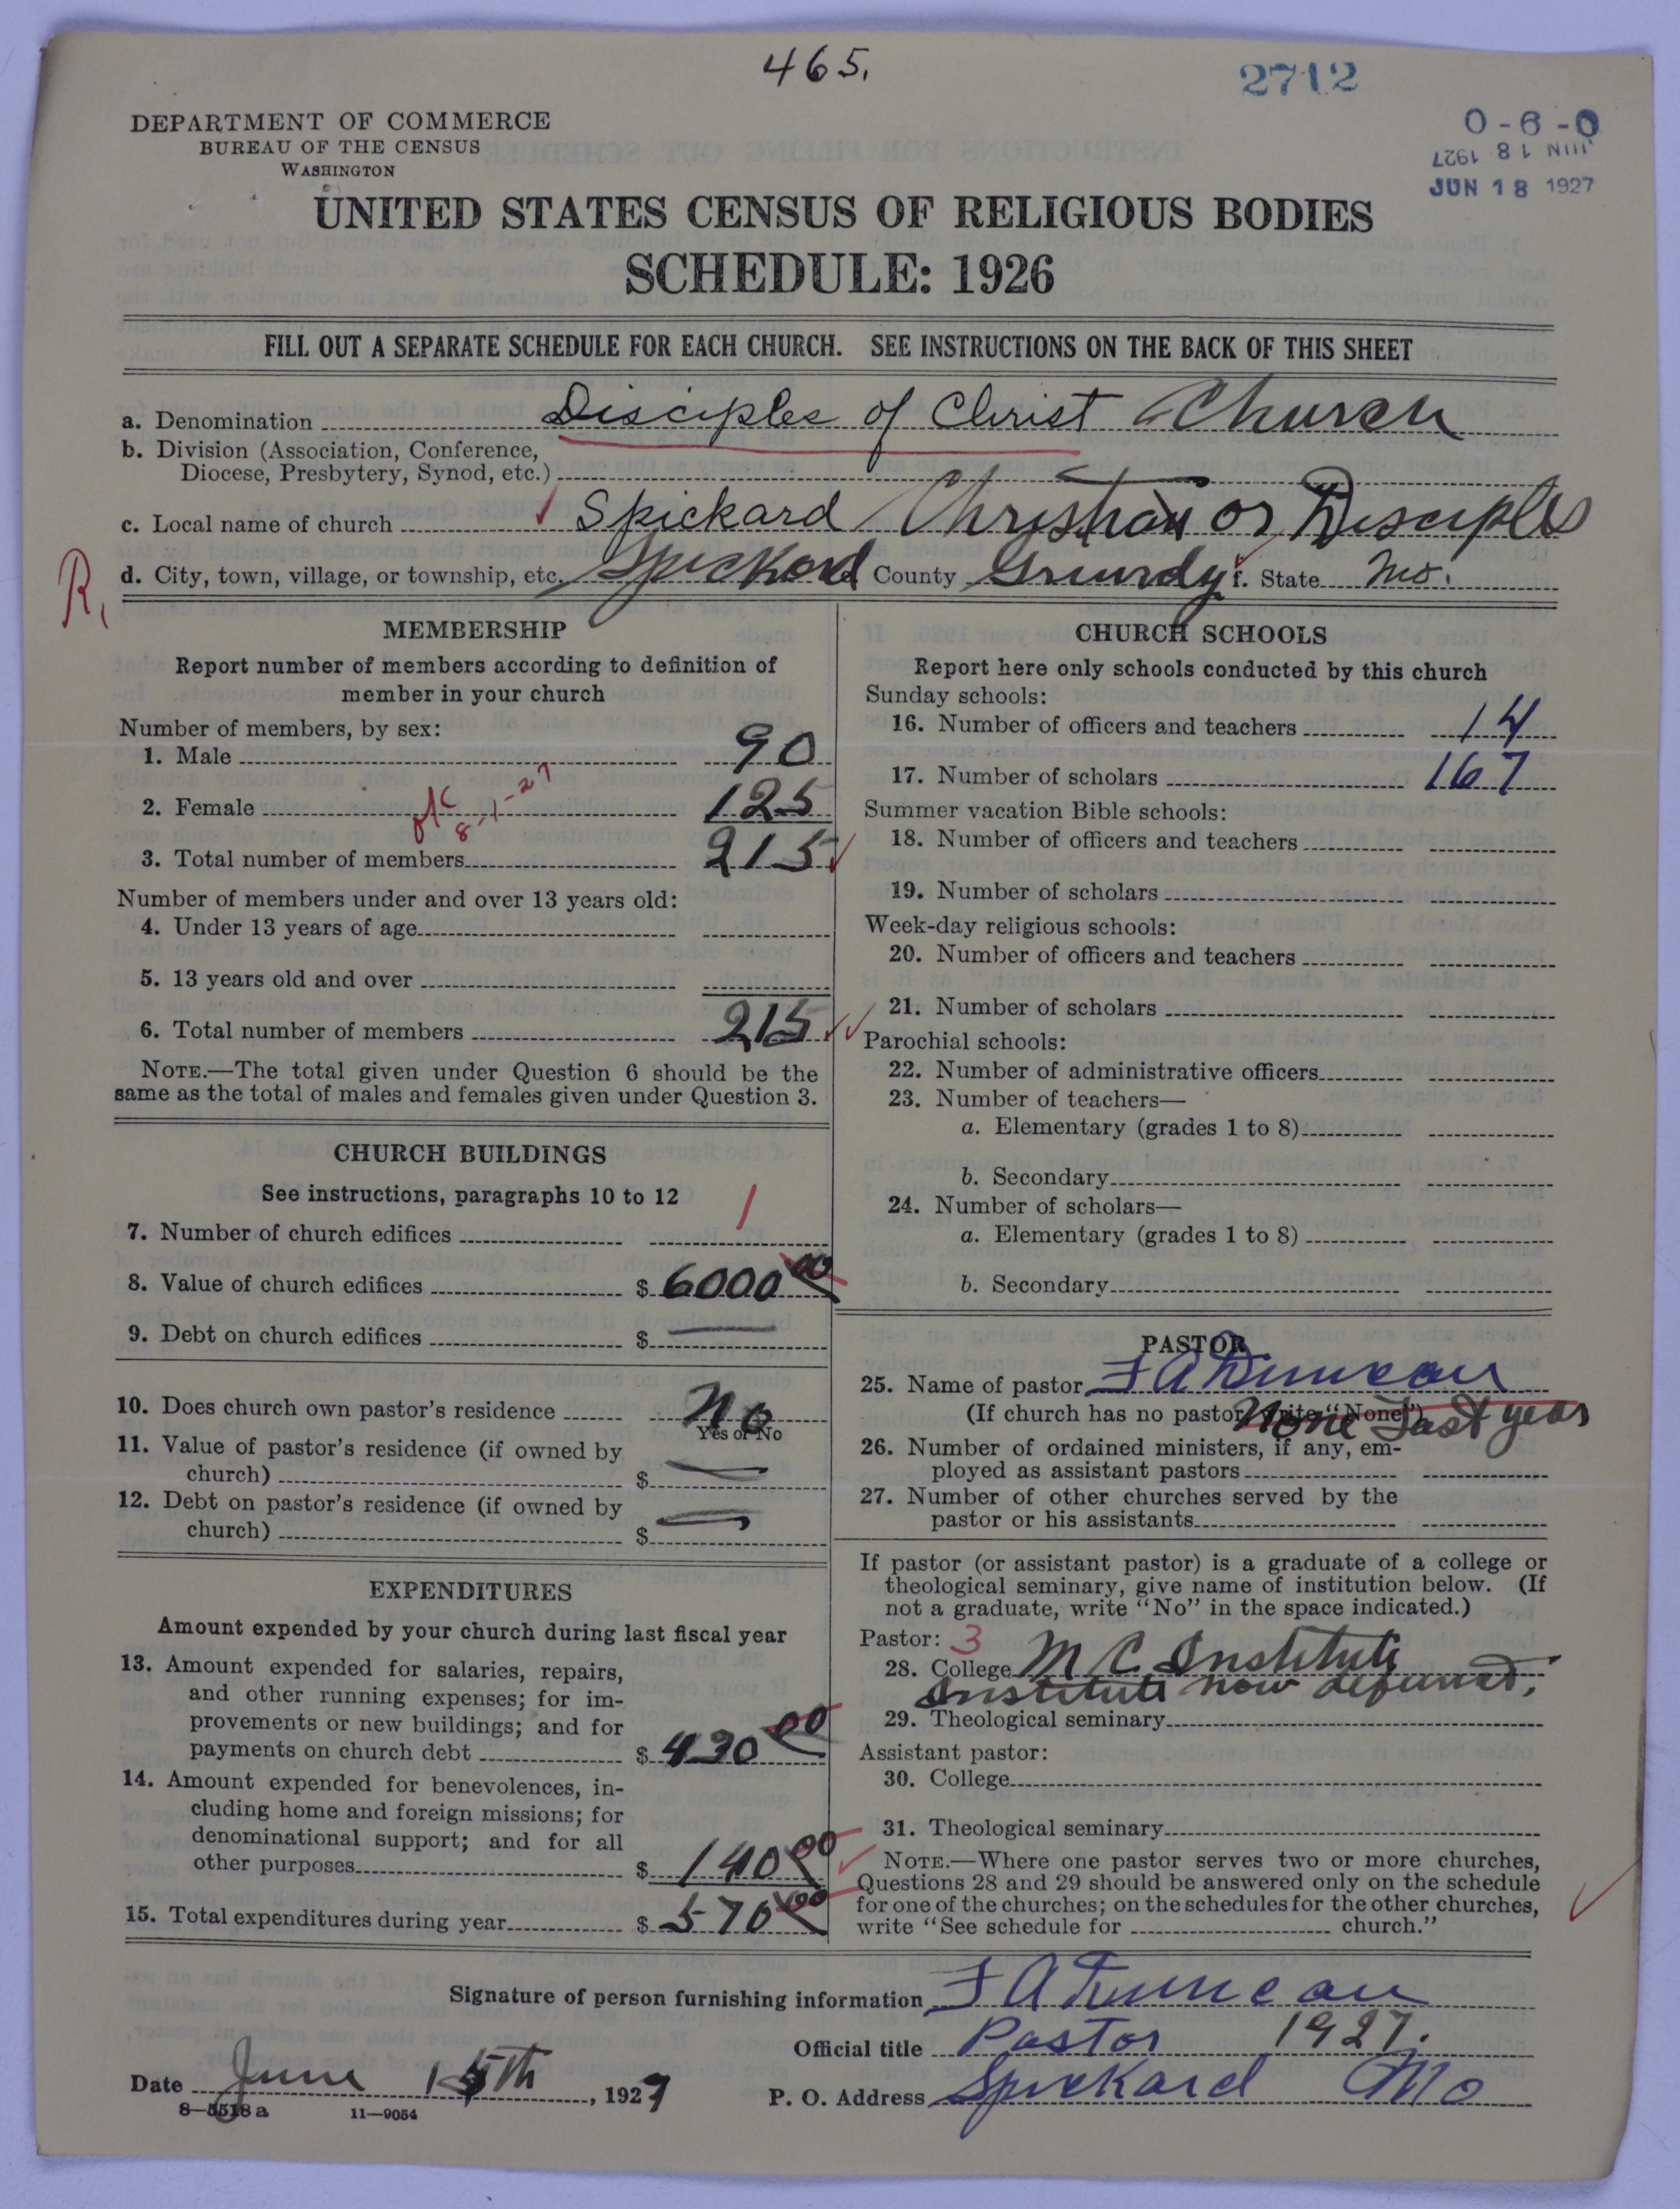 465.
2712
0-6-0
JUN 18 1927
JUN 18 1927
DEPARTMENT OF COMMERCE
BUREAU OF THE CENSUS
WASHINGTON
UNITED STATES CENSUS OF RELIGIOUS BODIES
SCHEDULE: 1926
FILL OUT A SEPARATE SCHEDULE FOR EACH CHURCH. SEE INSTRUCTIONS ON THE BACK OF THIS SHEET
a. Denomination Disciples of Christ Church
b. Division (Association, Conference,
Diocese, Presbytery, Synod, etc.)
c. Local name of church Spickard Christian or Disciples
R. d. City, town, village, or township, etc. Spickard County Grundy f. State Mo.
MEMBERSHIP
Report number of members according to definition of
member in your church
Number of members, by sex:
1. Male 90
2. Female 125
8-1-27
3. Total number of members 215
Number of members under and over 13 years old:
4. Under 13 years of age
5. 13 years old and over
6. Total number of members 215
NOTE.—The total given under Question 6 should be the
same as the total of males and females given under Question 3.
CHURCH BUILDINGS
See instructions, paragraphs 10 to 12
7. Number of church edifices 1
8. Value of church edifices $ 6000 00
9. Debt on church edifices $ —
10. Does church own pastor's residence No
Yes or No
11. Value of pastor's residence (if owned by
church) $ —
12. Debt on pastor's residence (if owned by
church) $ —
EXPENDITURES
Amount expended by your church during last fiscal year
13. Amount expended for salaries, repairs,
and other running expenses; for im-
provements or new buildings; and for
payments on church debt $ 430 00
14. Amount expended for benevolences, in-
cluding home and foreign missions; for
denominational support; and for all
other purposes $ 140 00
15. Total expenditures during year $ 570 00
CHURCH SCHOOLS
Report here only schools conducted by this church
Sunday schools:
16. Number of officers and teachers 14
17. Number of scholars 167
Summer vacation Bible schools:
18. Number of officers and teachers
19. Number of scholars
Week-day religious schools:
20. Number of officers and teachers
21. Number of scholars
Parochial schools:
22. Number of administrative officers
23. Number of teachers—
a. Elementary (grades 1 to 8)
b. Secondary
24. Number of scholars—
a. Elementary (grades 1 to 8)
b. Secondary
PASTOR
25. Name of pastor F A Duncan
(If church has no pastor, write "None") None Last year
26. Number of ordained ministers, if any, em-
ployed as assistant pastors
27. Number of other churches served by the
pastor or his assistants
If pastor (or assistant pastor) is a graduate of a college or
theological seminary, give name of institution below. (If
not a graduate, write "No" in the space indicated.)
Pastor: 3
28. College M C Institute
Institute now defunct.
29. Theological seminary
Assistant pastor:
30. College
31. Theological seminary
NOTE.—Where one pastor serves two or more churches,
Questions 28 and 29 should be answered only on the schedule
for one of the churches; on the schedules for the other churches,
write "See schedule for church."
Signature of person furnishing information F A Duncan
Official title Pastor 1927.
Date June 15th, 1927 P. O. Address Spickard Mo
8—5518a 11—9054